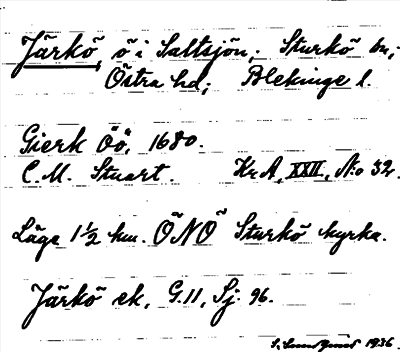 Järkö, ö i Saltsjön; Sturkö sn;
Östra hd; Blekinge l.
Gierk Öö, 1680.
C.M. Stuart. KrA, XXII, No 32.
Läge 1½ km. ÖNÖ Sturkö kyrka.
Järkö ek, G.11, Sj. 96.
1936.